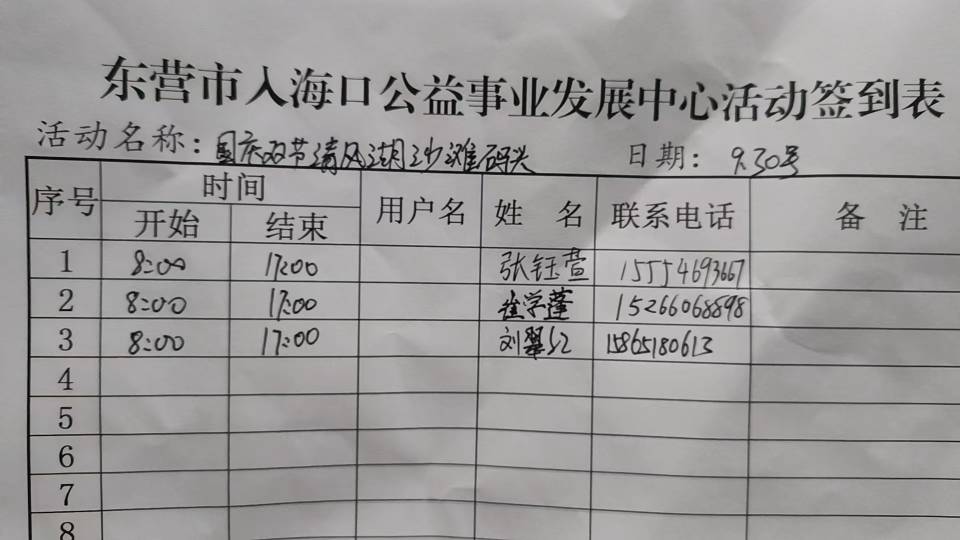 东营市入海口公益事业发展中心活动签到表
活动名称：国庆双节清风湖沙滩码头 日期：9.30号
序号 时间 用户名 姓 名 联系电话 备 注
开始 结束
1 8:00 17:00 张钰萱 15554693667
2 8:00 17:00 崔学莲 15266068898
3 8:00 17:00 刘翠红 15865180613
4
5
6
7
8